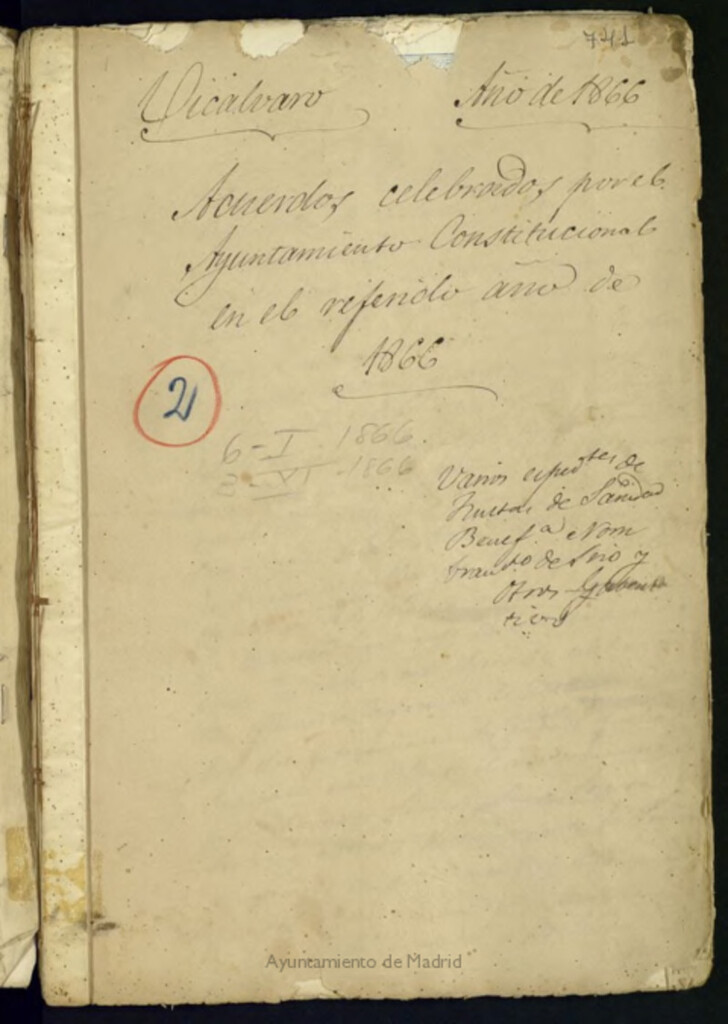 741
Vicalvaro Año de 1866
Acuerdos celebrados por el
Ayuntamiento Constitucional
en el referido año de
1866
2
6-I 1866
VI-1866
Varios espedtes de
Juntas de Sanidad
Benefa. e Nom
bramto de Srio y
Otros
Ayuntamiento de Madrid